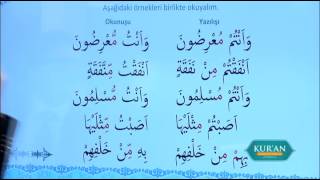 Aşağıdaki örnekleri birlikte okuyalım.
Okunuşu Yazılışı
وَاَنْتُمْ مُعْرِضُونَ وَاَنْتُ مُّعْرِضُونَ
اَنْفَقْتُمْ مِنْ نَفَقَةٍ اَنْفَقْتُ مِّنَّفَقَةٍ
وَاَنْتُمْ مُسْلِمُونَ وَاَنْتُ مُّسْلِمُونَ
اَصَبْتُمْ مِثْلَيْهَا اَصَبْتُ مِّثْلَيْهَا
بِهِمْ مِنْ خَلْفِهِمْ بِهِ مِّنْ خَلْفِهِمْ
KUR'AN